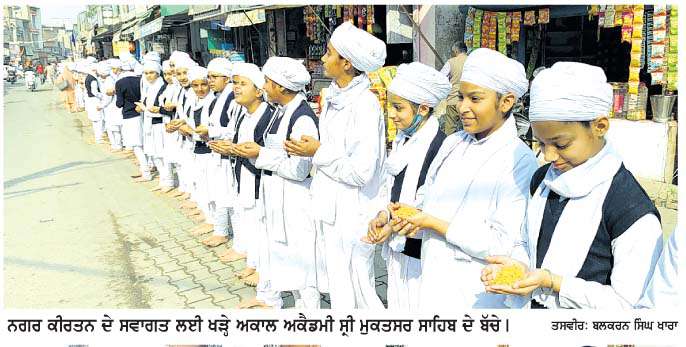 ਨਗਰ ਕੀਰਤਨ ਦੇ ਸਵਾਗਤ ਲਈ ਖੜ੍ਹੇ ਅਕਾਲ ਅਕੈਡਮੀ ਸ੍ਰੀ ਮੁਕਤਸਰ ਸਾਹਿਬ ਦੇ ਬੱਚੇ। ਤਸਵੀਰ: ਬਲਕਰਨ ਸਿੰਘ ਖਾਰਾ